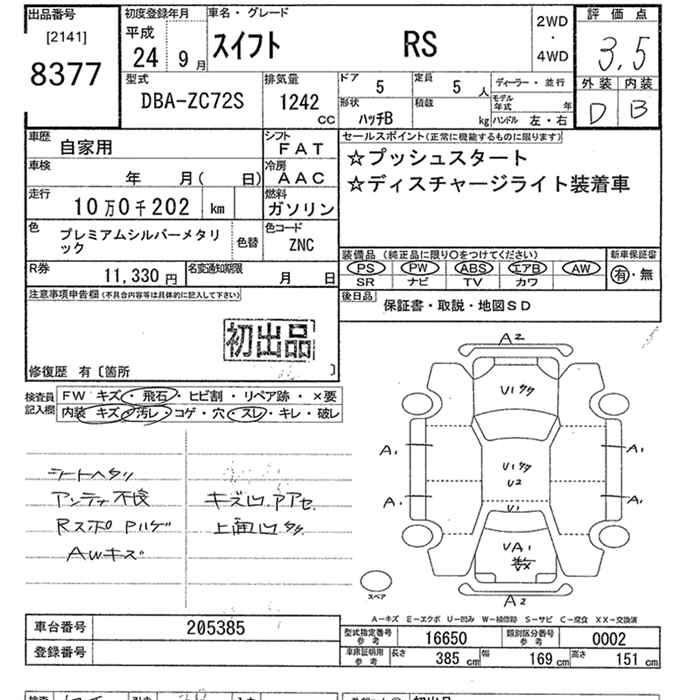 出品番号 初度登録年月 車名・グレード 2WD・4WD 評価点
[2141] 8377 平成24年9月 スイフト RS 3.5
外装 内装
D B
型式 排気量 ドア 定員 ディーラー・並行
DBA-ZC72S 1242cc 5 5人 モデル年式 年
形状 ハッチB 積載 kg ハンドル 左・右
車歴 自家用 シフト FAT
セールスポイント(正常に機能するものに限ります)
☆プッシュスタート
☆ディスチャージライト装着車
車検 年 月( 日) 冷房 AAC
走行 10万0千202 km 燃料 ガソリン
色 プレミアムシルバーメタリック 色替 色コード ZNC
装備品(純正品に限り○をつけてください) 新車保証書
PS PW ABS エアB AW 有・無
SR ナビ TV カワ
R券 11,330円 名変通知期限 月 日
後日品 保証書・取説・地図SD
注意事項申告欄(不具合内容等は具体的に記入して下さい)
初出品
修復歴 有〔箇所 〕
検査員記入欄 FW キズ・飛石・ヒビ割・リペア跡・×要
内装 キズ・汚レ・コゲ・穴・スレ・キレ・破レ
シートヘタリ
アンテナ不良 キズ凹アアセ
Rスポ Pハゲ 上面凹
AWキズ
A2
U1
A1 A1
U1
U2
A1 U1 A1
UA1
A2
スペア
A-キズ E-エクボ U-凹み W-補修跡 S-サビ C-腐食 XX-交換済
車台番号 205385
型式指定番号参考 16650 類別区分番号参考 0002
登録番号
車庫証明用参考 長さ 385cm 幅 169cm 高さ 151cm